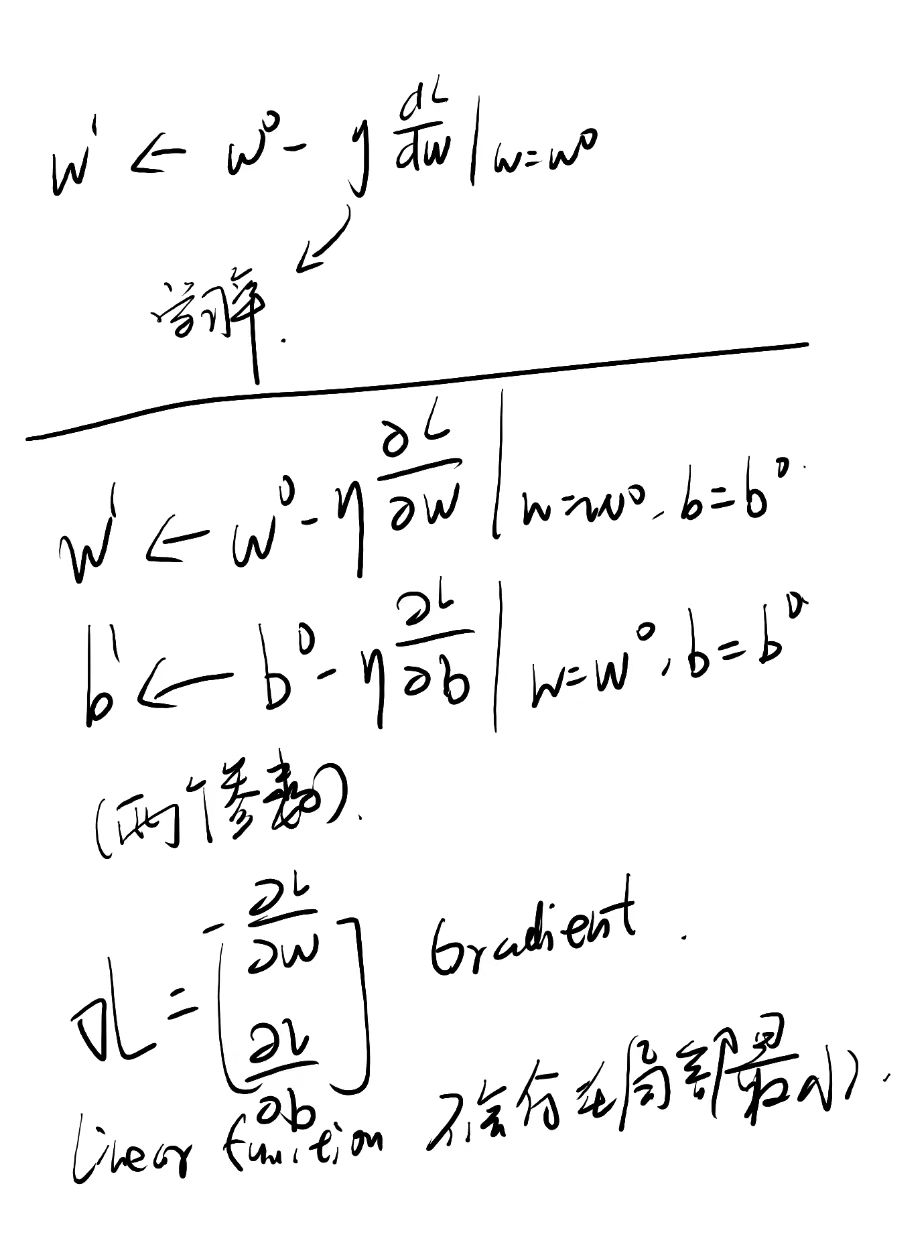 w¹ ← w⁰ - η dL/dw | w=w⁰
学习率.
w¹ ← w⁰ - η ∂L/∂w | w=w⁰, b=b⁰.
b¹ ← b⁰ - η ∂L/∂b | w=w⁰, b=b⁰
(两个参数).
∇L = [∂L/∂w ∂L/∂b] Gradient.
Linear function 不会存在局部最小.